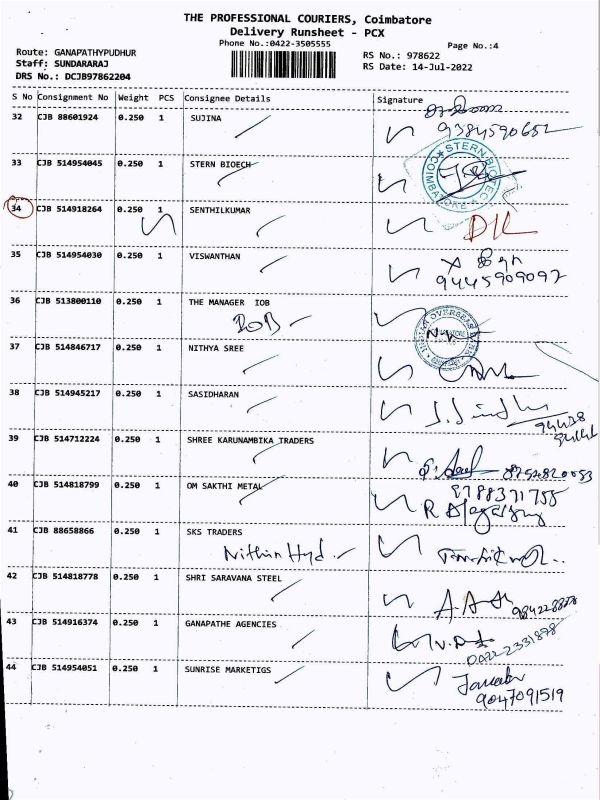 THE PROFESSIONAL COURIERS, Coimbatore
Delivery Runsheet - PCX
Phone No.:0422-3505555
Page No.:4
Route: GANAPATHYPUDHUR
RS No.: 978622
Staff: SUNDARARAJ
RS Date: 14-Jul-2022
DRS No.: DCJB97862204
S No Consignment No Weight PCS Consignee Details Signature
32 CJB 88601924 0.250 1 SUJINA
9384590652
33 CJB 514954045 0.250 1 STERN BIOECH
STERN BIOTEC COIMBATORE
34 CJB 514918264 0.250 1 SENTHILKUMAR
35 CJB 514954030 0.250 1 VISWANTHAN
9445909092
36 CJB 513800110 0.250 1 THE MANAGER IOB
IOB
37 CJB 514846717 0.250 1 NITHYA SREE
38 CJB 514945217 0.250 1 SASIDHARAN
39 CJB 514712224 0.250 1 SHREE KARUNAMBIKA TRADERS
40 CJB 514818799 0.250 1 OM SAKTHI METAL
9788371755
41 CJB 88658866 0.250 1 SKS TRADERS
Nithin Hyd
42 CJB 514818778 0.250 1 SHRI SARAVANA STEEL
43 CJB 514916374 0.250 1 GANAPATHE AGENCIES
44 CJB 514954051 0.250 1 SUNRISE MARKETIGS
9047091519